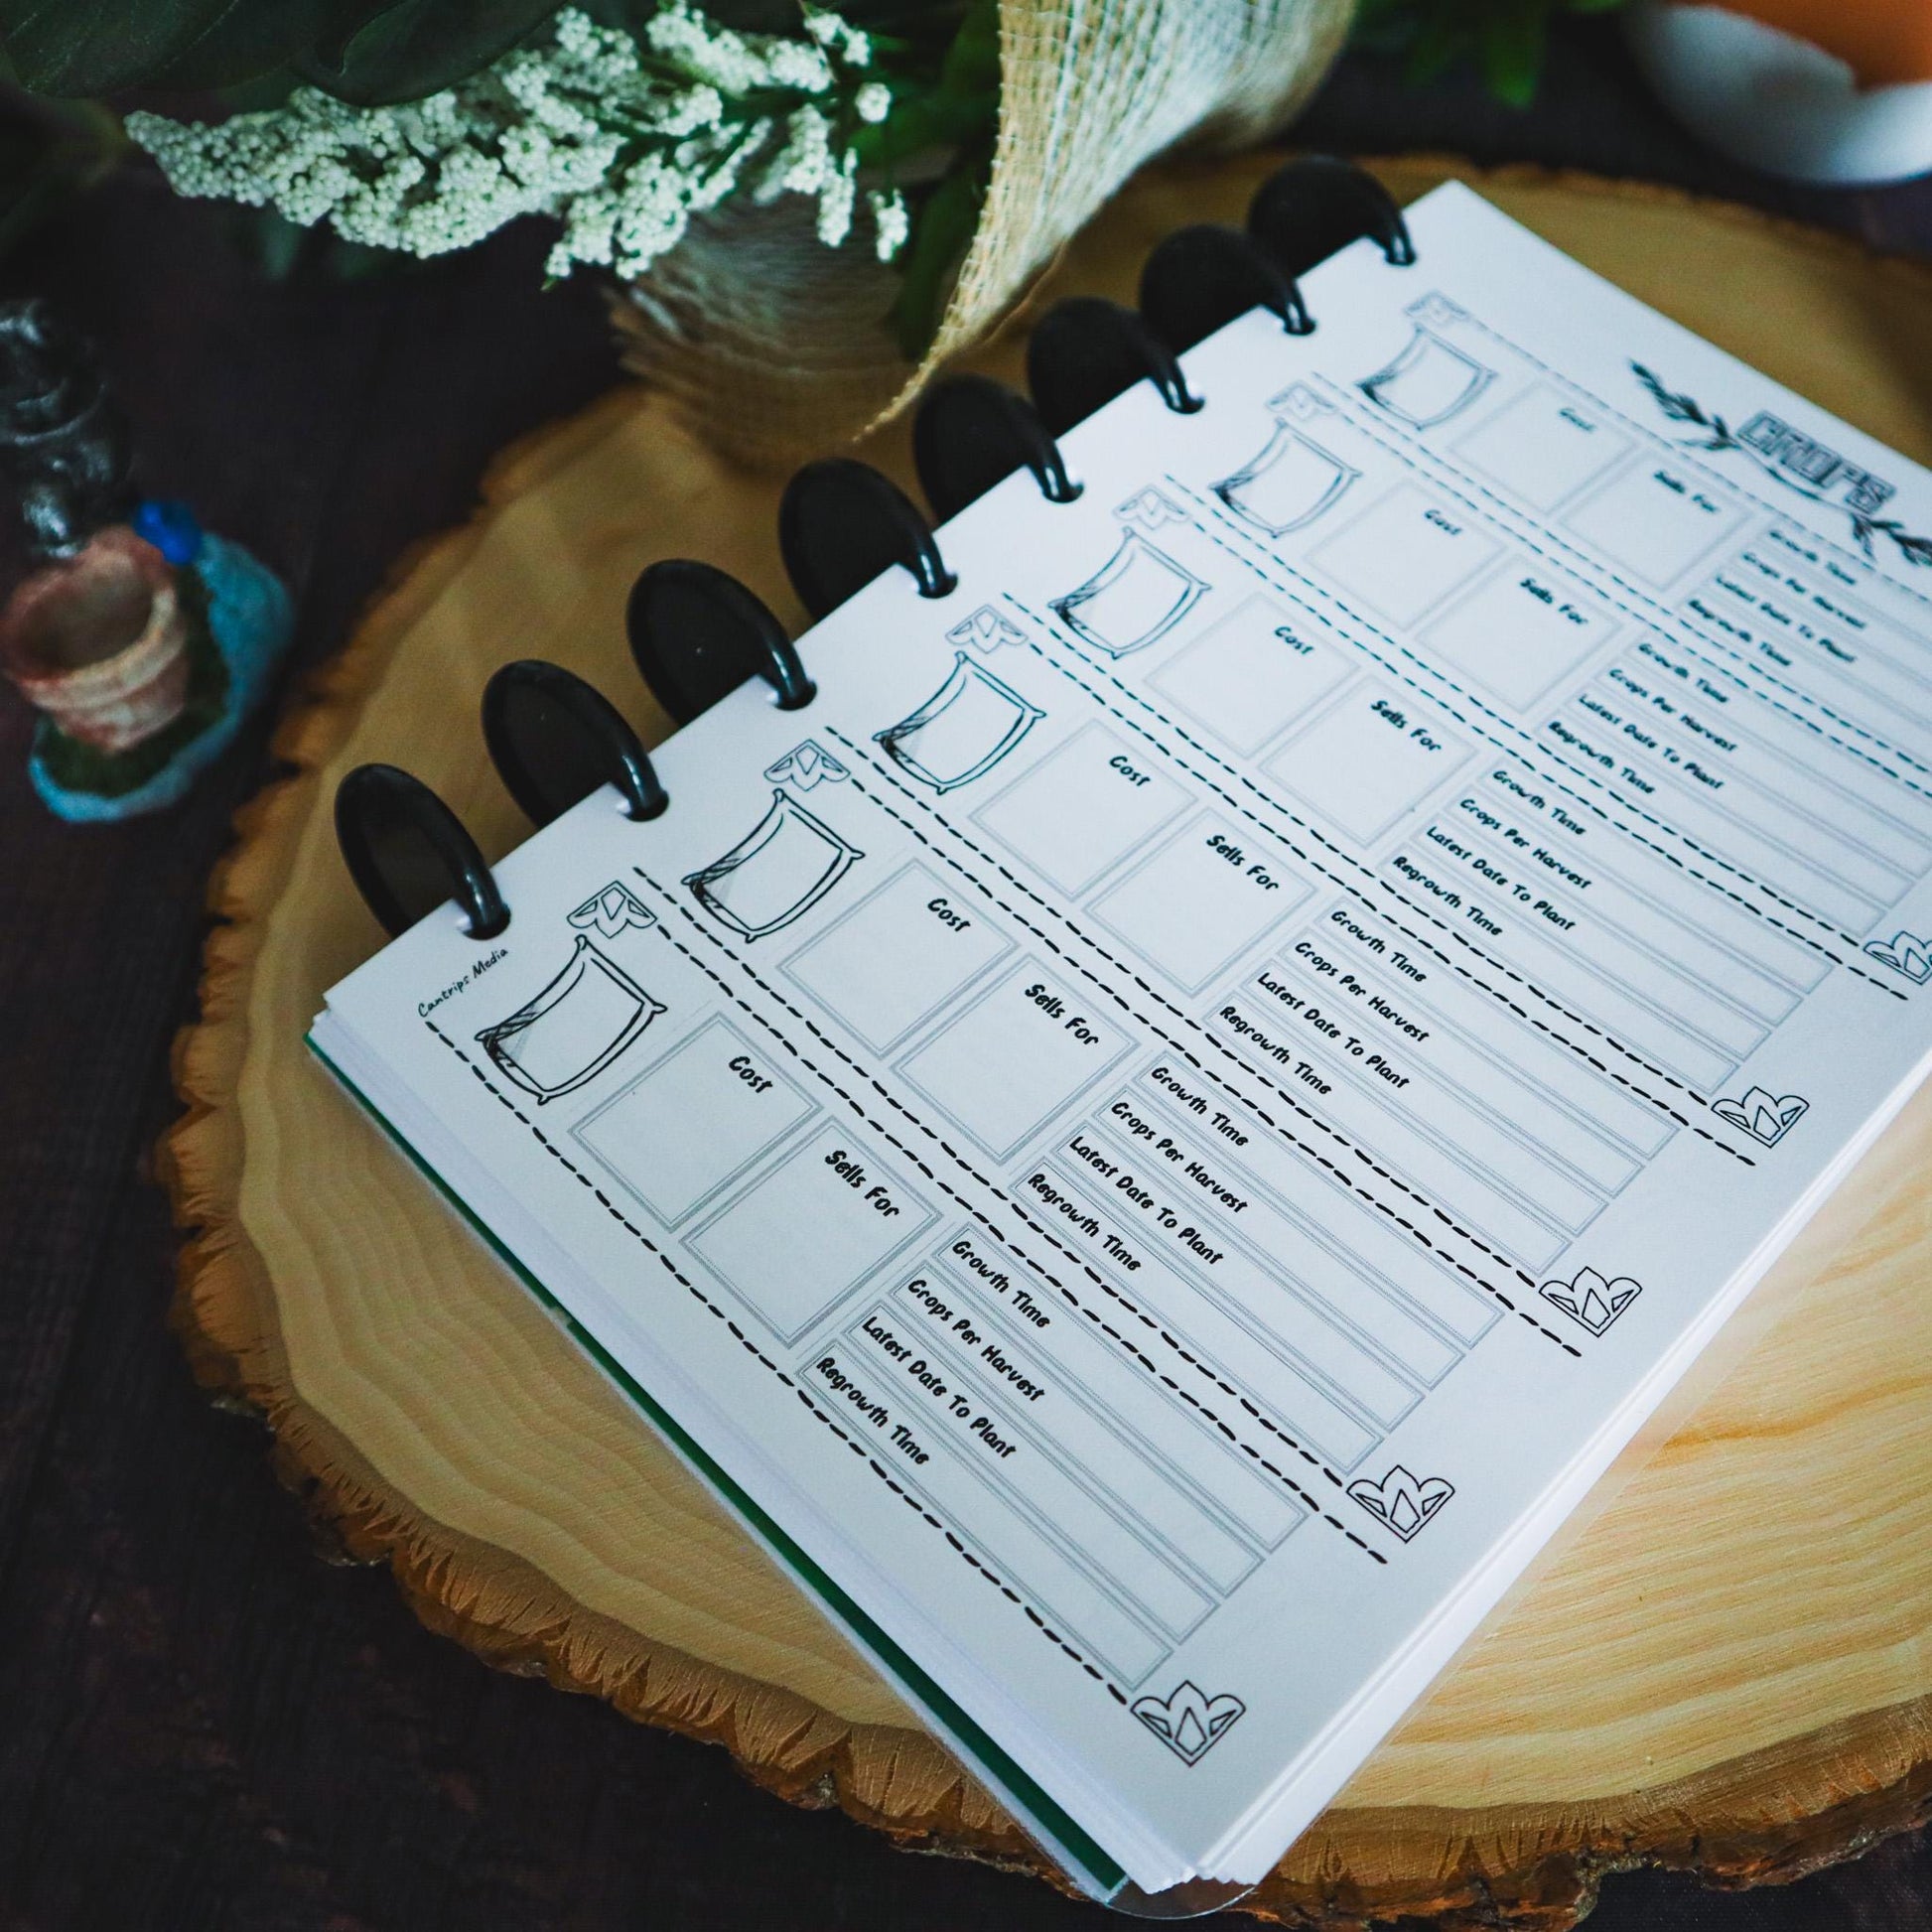 CROPS
Cost
Sells For
Growth Time
Crops Per Harvest
Latest Date To Plant
Regrowth Time
Cost
Sells For
Growth Time
Crops Per Harvest
Latest Date To Plant
Regrowth Time
Cost
Sells For
Growth Time
Crops Per Harvest
Latest Date To Plant
Regrowth Time
Cost
Sells For
Growth Time
Crops Per Harvest
Latest Date To Plant
Regrowth Time
Cost
Sells For
Growth Time
Crops Per Harvest
Latest Date To Plant
Regrowth Time
Cost
Sells For
Growth Time
Crops Per Harvest
Latest Date To Plant
Regrowth Time
Cantrips Media